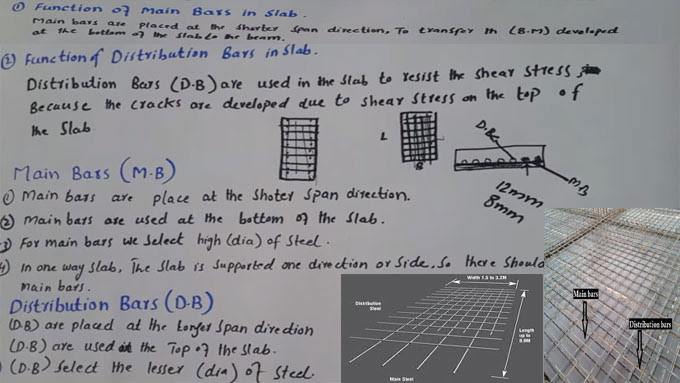 ① Function of Main Bars in Slab.
Main bars are placed at the shorter span direction, To transfer th (B.M) developed
at the bottom of the slab to the beam.
② Function of Distribution Bars in Slab.
Distribution Bars (D.B) are used in the slab to resist the shear stress
Because the cracks are developed due to shear stress on the top of
the Slab
L
B
D.B
M.B
12mm
8mm
Main Bars (M.B)
① Main bars are place at the Shoter Span direction.
② Main bars are used at the bottom of the Slab.
3) For main bars we Select high (dia) of Steel.
4) In one way slab, The Slab is Supported one direction or Side, So there Should
main bars.
Distribution Bars (D.B)
(D.B) are placed at the Longer Span direction
(D.B) are used at the Top of the slab.
) (D.B) Select the lesser (dia) of Steel.
Width 1.5 to 3.2ft
Distribution
Steel
Length
up to
Main Steel
Main bars
Distribution bars